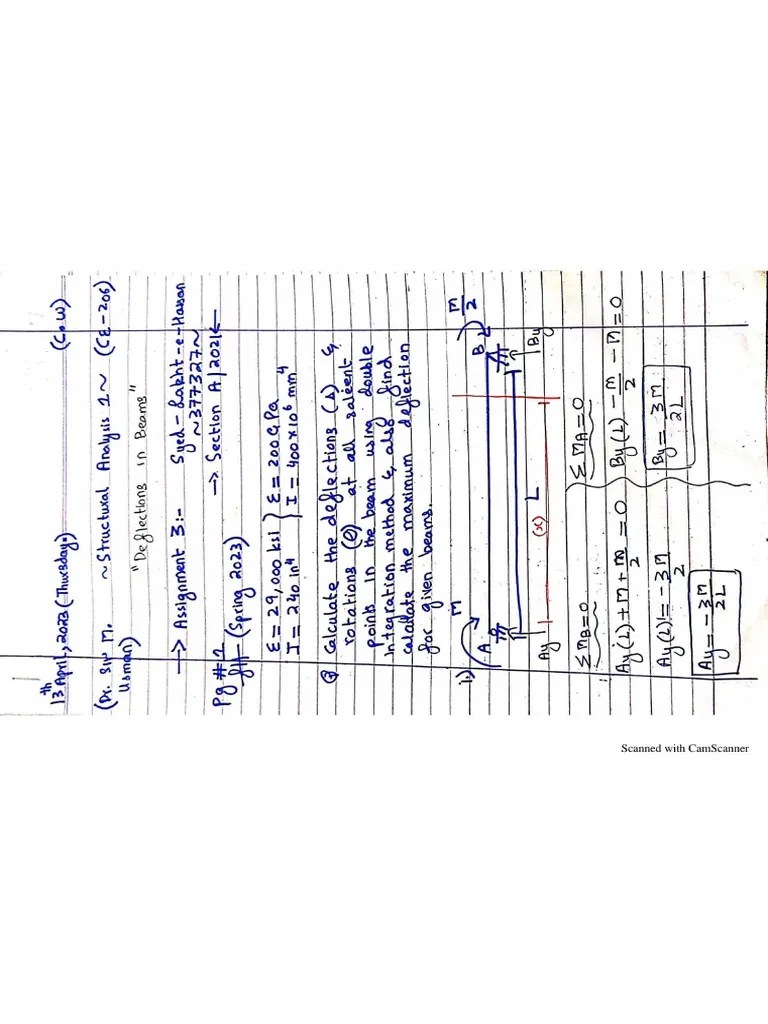 13th April, 2023 (Thursday.) (C.W)
(Dr. Sir M. Usman) ~Structural Analysis 1~ (CE-206)
"Deflections in Beams"
→ Assignment 3:- Syed-Lakht-e-Hassan
~377327~
Pg #1 → Section A/2021 ←
(Spring 2023)
E = 29,000 ksi } E = 200 GPa
I = 240 in4 } I = 400×10^6 mm4
Q Calculate the deflections (Δ) &
rotations (θ) at all saleent
points in the beam using double
integration method &, also find
calculate the maximum deflection
for given beams.
i.) M M/2
A B
Ay (x) L By
ΣMB=0 ΣMA=0
Ay(L)+M+M/2=0 By(L)-M/2-M=0
Ay(L)=-3M/2 By=3M/2L
Ay=-3M/2L
Scanned with CamScanner